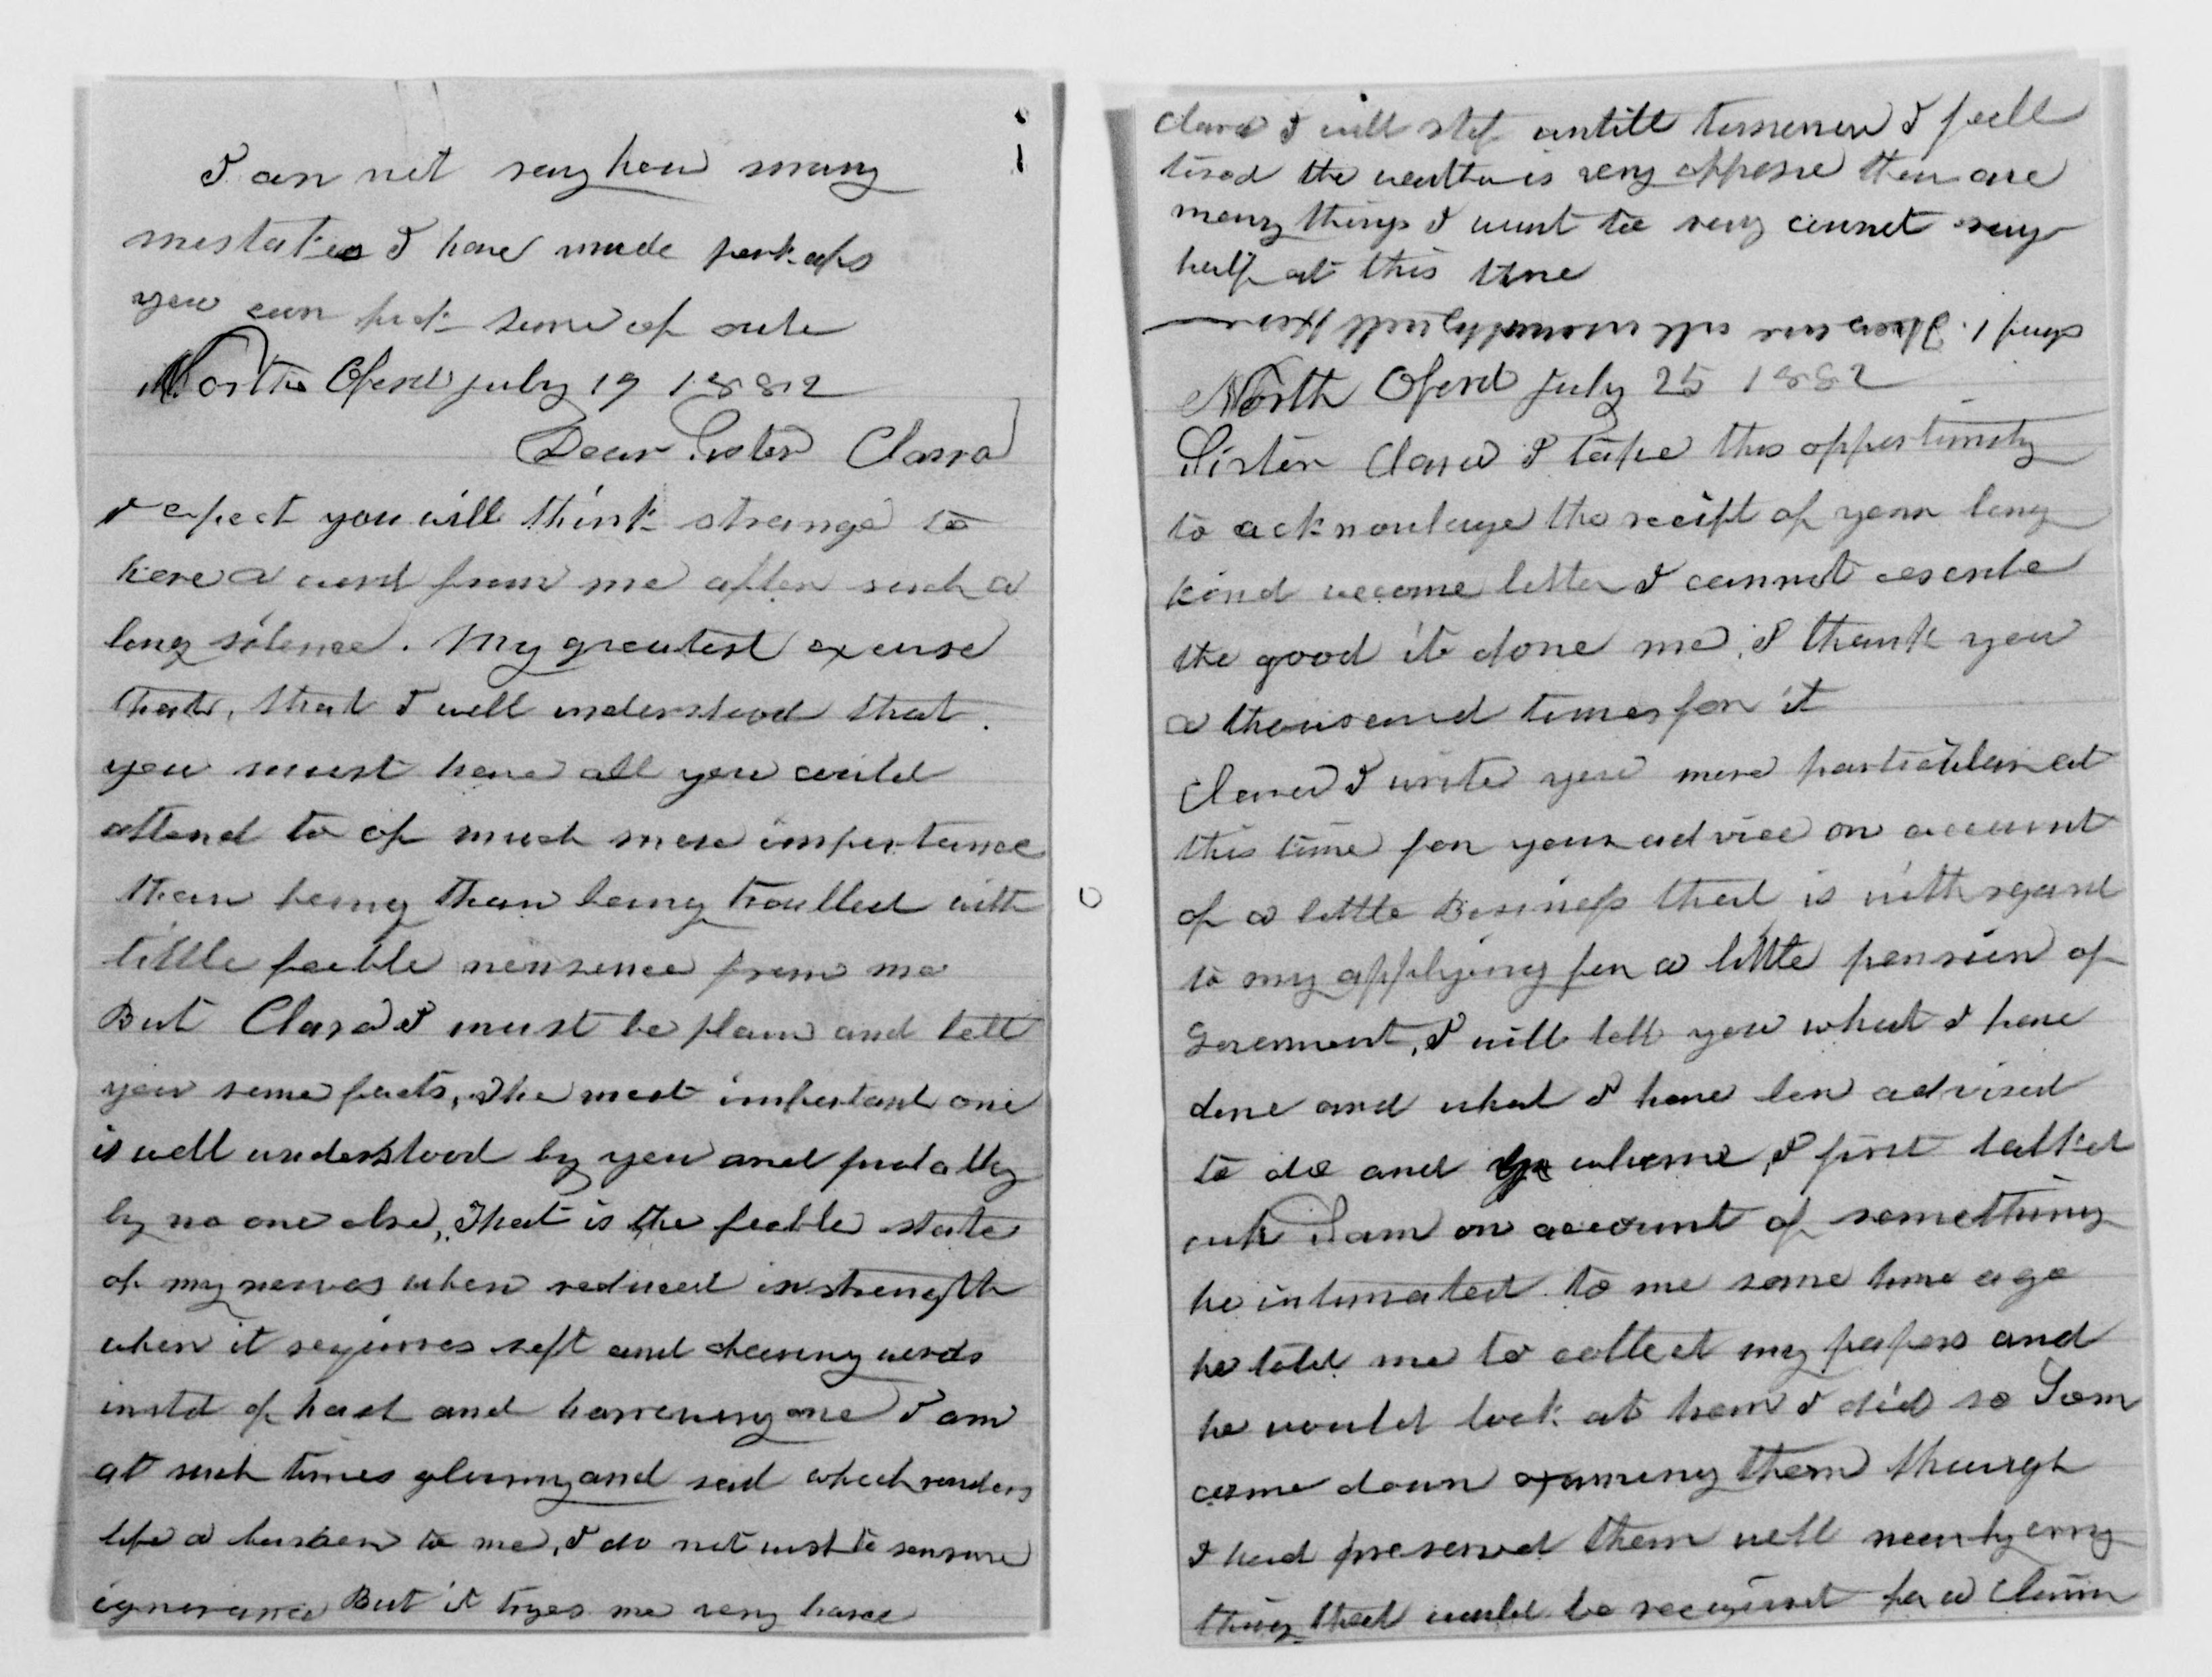 I can not say how many
mestakes I have made perhaps
you can pick some of out
North Oferd July 19 1882
Dear Sister Clara
I expect you will think strange to
here a word from me after such a
long silence. My greatest excuse
that, that I well understood that
you must have all you could
attend to of much more importance
than being than being troulled with
little feeble nonsence from me
But Clara I must be plain and tell
you some facts, The most important one
is well understood by you and probally
by no one else, That is the feeble state
of my nerves when reduced in strength
when it requires soft and chearing words
insted of hash and harrowing one I am
at such times gloomy and sad which renders
life a burden to me, I do not wish to sensure
ignorance But it tryes me very hard
Clara I will stop untill tomorrow I feell
tired the weather is very there are
many things I want to say cannot say
half at this time
page 1.
North Oferd July 25 1882
Sister Clara I take this oppertunity
to acknowlage the recipt of your long
kind letter I cannot
the good it done me, I thank you
a thousand times for it
Clara I write you more particular at
this time for your advice on account
of a little Business that is with regard
to my applying for a little pension of
Goverment, I will tell you what I have
done and what I have ben advised
to do and by whome, I first talked
with Sam on account of something
he intimated to me some time ago
he told me to collect my papers and
he would look at them I did so Sam
came down them through
I had preserved them well nearly evry
thing that would be required for a Claim